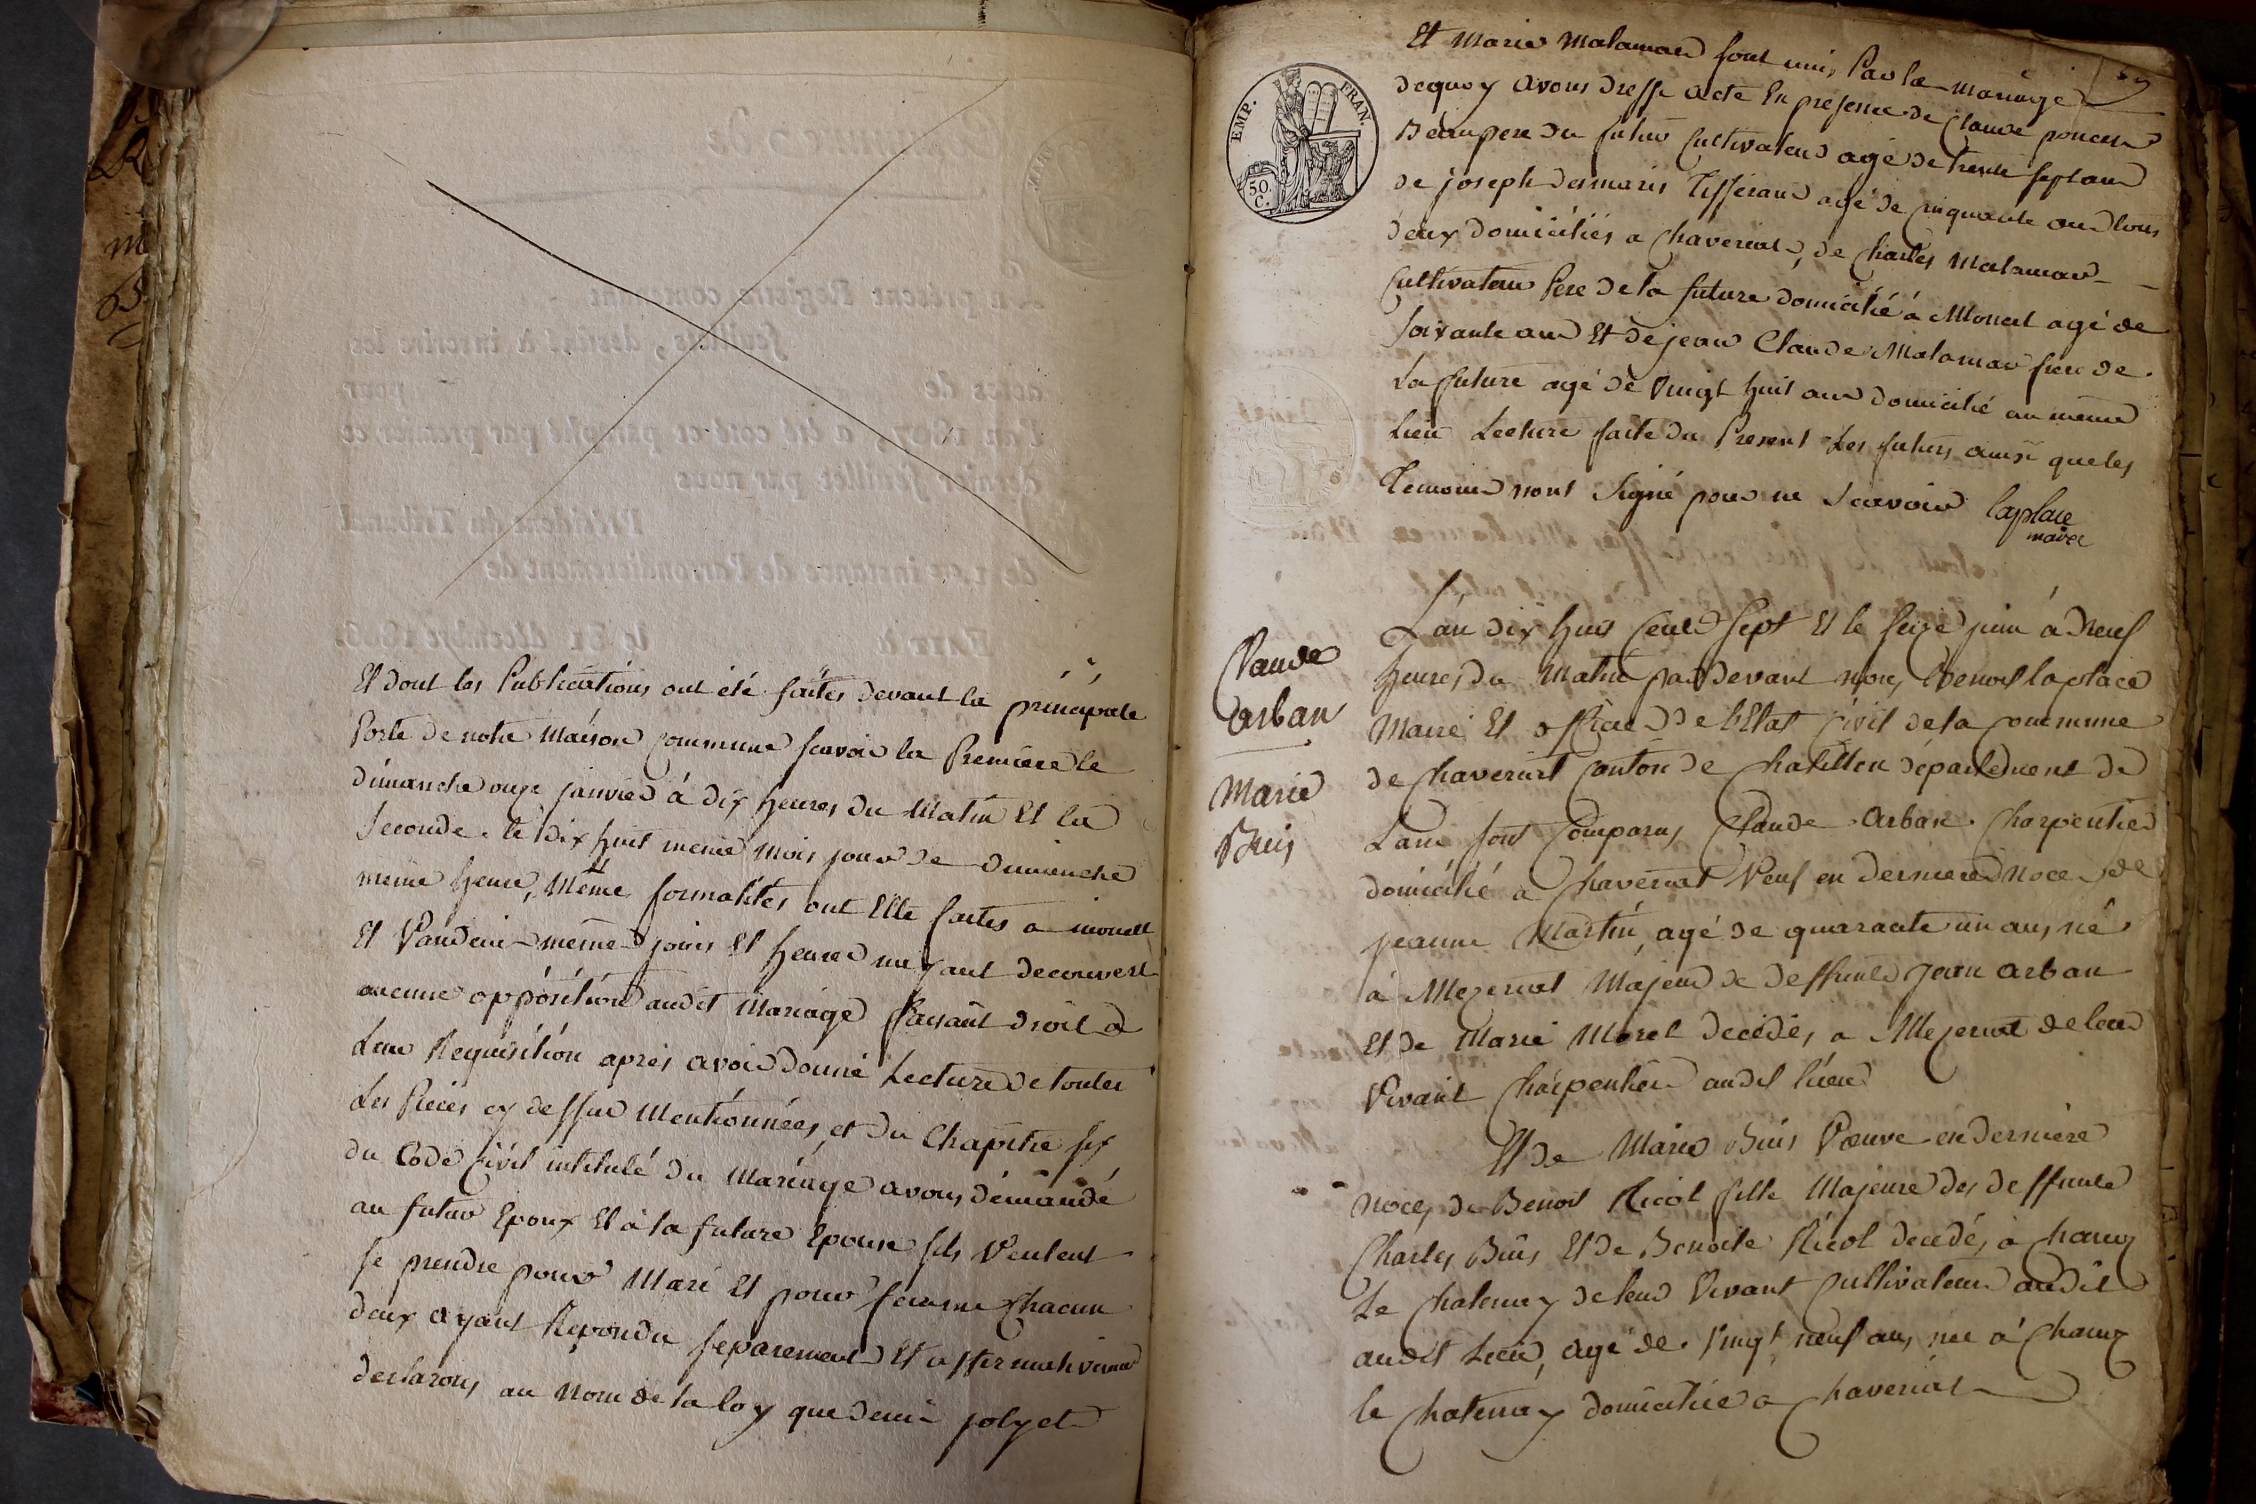 Et dont les Publications ont été faites devant la principale
Porte de notre Maison commune scavoir la Premiere le
dimanche onze janvier à dix heures du Matin Et la
seconde le dix huit meme mois jour de dimanche
meme heure, Même formalités ont Etté faites a
Et Vandein même jours Et heure ney ant decouvert
aucune opposition audit Mariage faisant droit a
Leur Requisition apres avoir donné Lecture de toutes
Les Pieces cy dessus Mentionnées et du Chapitre six
du Code Civil intitulé du Mariage avons démandé
au futur Epoux Et à la future Epouse sils Veulent
se prendre pour Mari Et pour femme chacun
deux ayant Repondu separement Et affirmativement
declarons au Nom de la loy que denis joly et
Et Marie Malamar sont unis Par le mariage
dequoy avons dressé acte En presence de Claude poncet
Beaupere du futur Cultivateur agé de trente sept ans
de joseph desmaris Tisserand agé de cinquante ans tous
deux domiciliés a chaveriat, de Charles Malamar
Cultivateur Pere de la future domicilié à agé de
soixante ans Et de jean Claude Malamar frere de
La future agé de Vingt huit ans domicilié au meme
Lieu Lecture faite du Present Les futurs ainsi que les
Temoins nont signé pour ne scavoir laplace
maire
EMP. FRAN.
50.
C.
Claude
arban
Marie
Buis
L'an dix huit Cent sept Et le seize juin à neuf
heures du Matin par devant nous Benoit laplace
Maire Et officier de l'Etat Civil de la commune
de chaveriat Canton de Chatillon département de
Lain sont Comparus Claude arban Charpentier
domicilié a chaveriat Veuf en derniere noce de
jeanne Martin, agé de quarante un ans, né
à Mezeriat Majeur de deffunts jean arban
Et de Marie Morel decédés a Mezeriat de leur
Vivant Charpentier audit lieu
Et de Marie Buis Vœuve en derniere
noces de Benoit Ricol fille Majeure des deffunts
Charles Buis Et de Benoite Ricol decedés à chanoz
Le chatenay de leur Vivant Cultivateur audit
audit Lieu, agé de Vingt neuf ans, nee a chanoz
le chatenay domiciliée a chaveriat